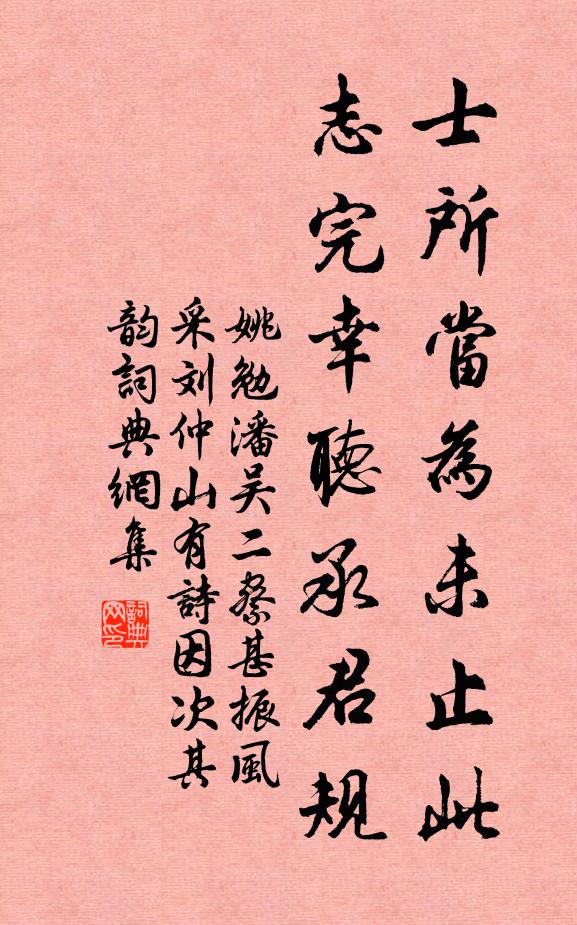 士所當為未止此
志完幸聽承君規
姚勉潘吴二察甚振風
采刘仲山有詩因次其
韵詞典網集
詞典网印